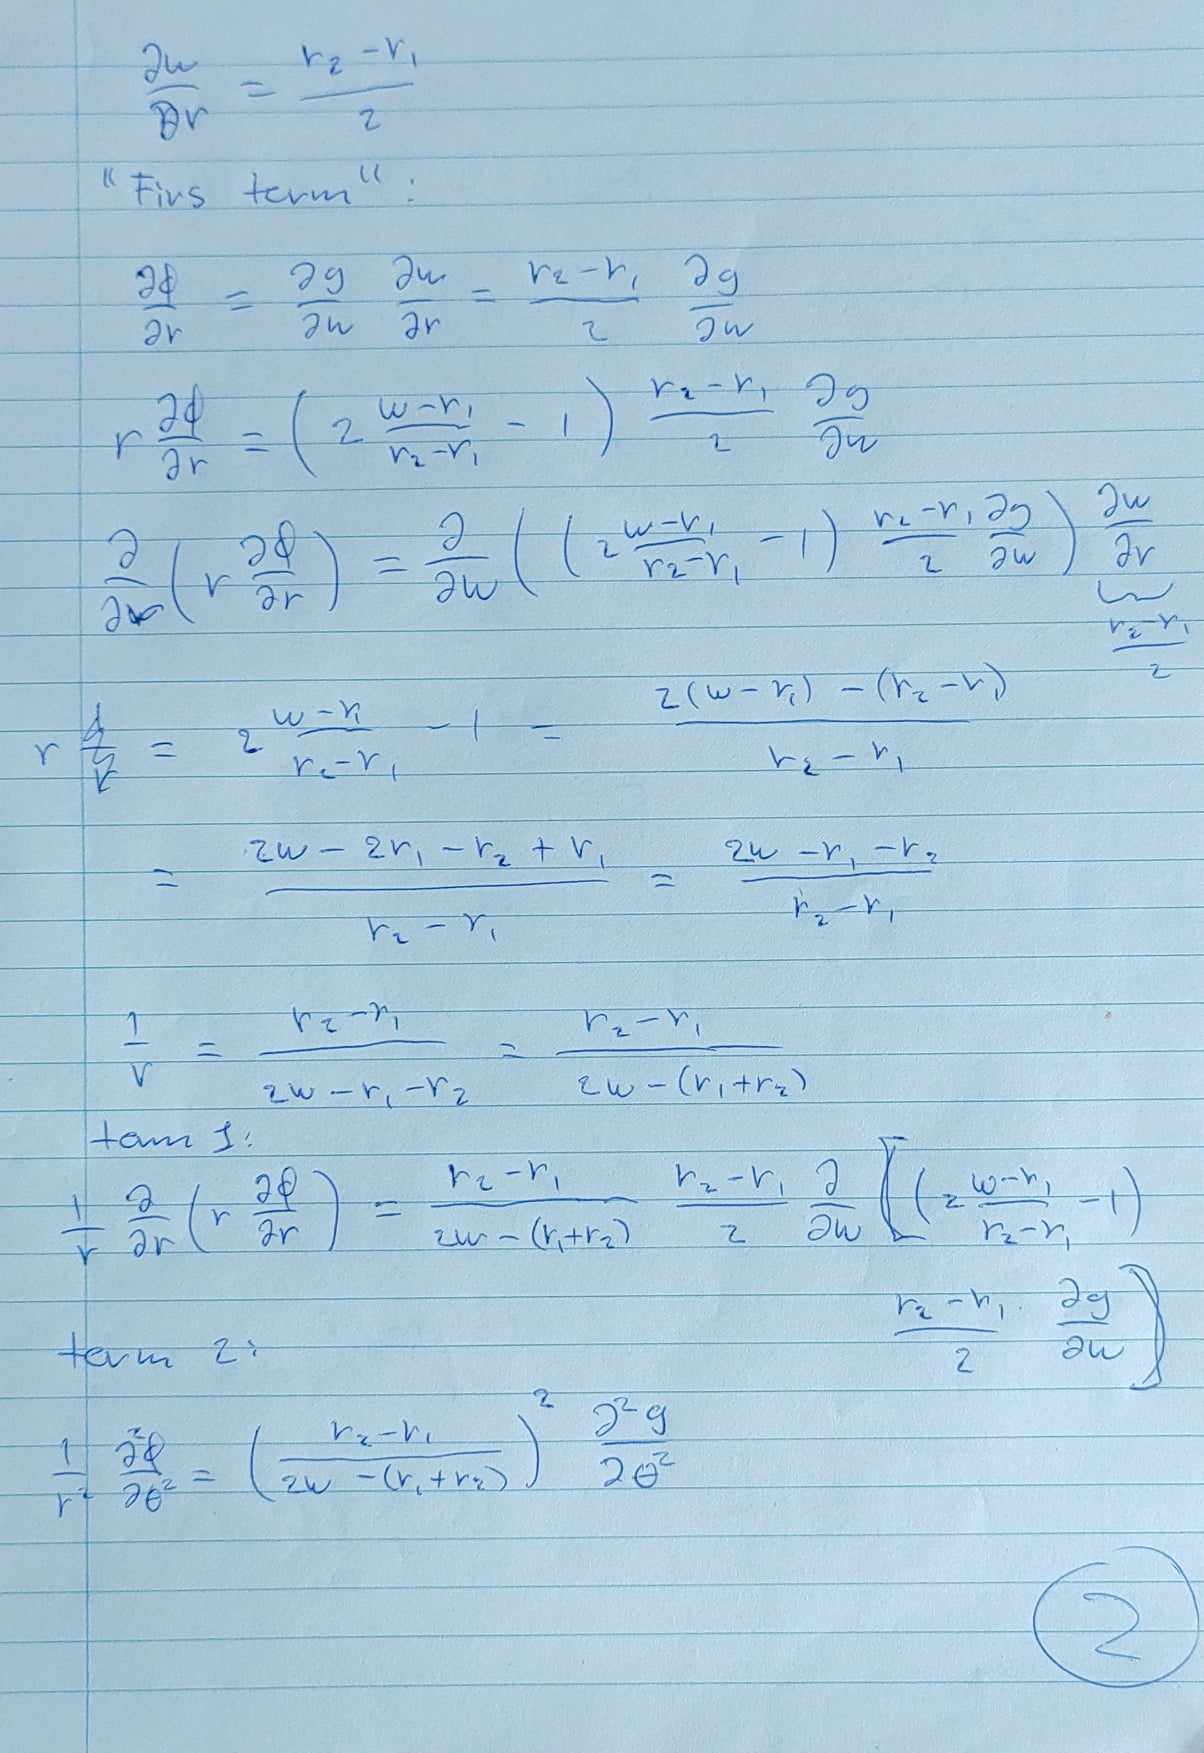 ∂w/∂r = (r₂ - r₁)/2
"Firs term":
∂ϕ/∂r = ∂g/∂w ∂w/∂r = (r₂ - r₁)/2 ∂g/∂w
r ∂ϕ/∂r = (2 (w - r₁)/(r₂ - r₁) - 1) (r₂ - r₁)/2 ∂g/∂w
∂/∂r (r ∂ϕ/∂r) = ∂/∂w ((2 (w - r₁)/(r₂ - r₁) - 1) (r₂ - r₁)/2 ∂g/∂w) ∂w/∂r
(r₂ - r₁)/2
r = 2 (w - r₁)/(r₂ - r₁) - 1 = (2(w - r₁) - (r₂ - r₁))/(r₂ - r₁)
= (2w - 2r₁ - r₂ + r₁)/(r₂ - r₁) = (2w - r₁ - r₂)/(r₂ - r₁)
1/r = (r₂ - r₁)/(2w - r₁ - r₂) = (r₂ - r₁)/(2w - (r₁ + r₂))
tam 1:
1/r ∂/∂r (r ∂ϕ/∂r) = (r₂ - r₁)/(2w - (r₁ + r₂)) (r₂ - r₁)/2 ∂/∂w [(2 (w - r₁)/(r₂ - r₁) - 1)
(r₂ - r₁)/2 · ∂g/∂w]
term 2:
1/r² ∂²ϕ/∂θ² = ((r₂ - r₁)/(2w - (r₁ + r₂)))² ∂²g/∂θ²
2